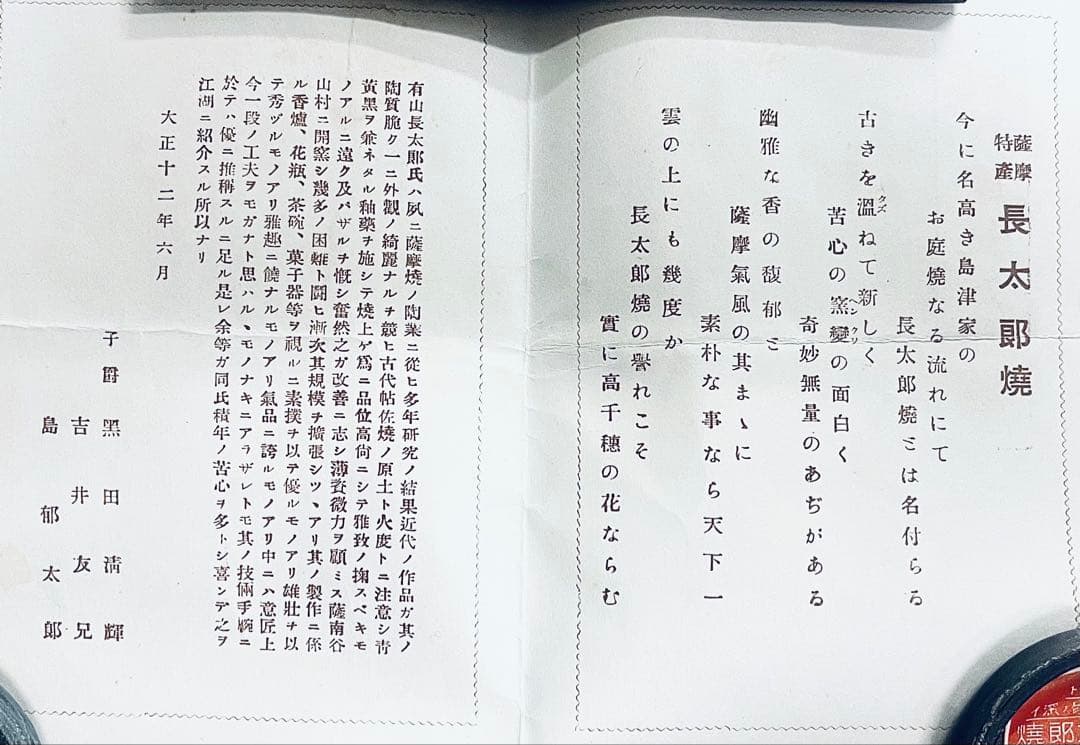 薩摩
特産
長太郎燒
今に名高き島津家の
お庭燒なる流れにて
長太郎燒とは名付らる
古きを溫ねて新しく
クズ
苦心の窯變の面白く
ヘンクリ
奇妙無量のあぢがある
幽雅な香の馥郁と
薩摩氣風の其まゝに
素朴な事なら天下一
雲の上にも幾度か
長太郎燒の譽れこそ
實に高千穗の花ならむ
有山長太郎氏ハ夙ニ薩摩燒ノ陶業ニ從ヒ多年硏究ノ結果近代ノ作品ガ其ノ
陶質脆ク一ニ外觀ノ綺麗ナルヲ競ヒ古代帖佐燒ノ原土ト火度トニ注意シ靑
黃黑ヲ兼ネタル釉藥ヲ施シテ燒上ゲ爲ニ品位高尙ニシテ雅致ノ掬スベキモ
ノアルニ遠ク及バザルヲ慨シ奮然之ガ改善ニ志シ薄資微力ヲ顧ミス薩南谷
山村ニ開窯シ幾多ノ困難ト鬪ヒ漸次其規模ヲ擴張シツヽアリ其ノ製作ニ係
ル香爐、花瓶、茶碗、菓子器等ヲ視ルニ素撲ヲ以テ優ルモノアリ雄壯ヲ以
テ秀ヅルモノアリ雅趣ニ饒ナルモノアリ氣品ニ誇ルモノアリ中ニハ意匠上
今一段ノ工夫ヲモガナト思ハルヽモノナキニアラザレトモ其ノ技倆手腕ニ
於テハ優ニ推稱スルニ足ル是レ余等ガ同氏積年ノ苦心ヲ多トシ喜ンデ之ヲ
江湖ニ紹介スル所以ナリ
大正十二年六月
子爵 黑田淸輝
吉井友兄
島郁太郎
燒郎